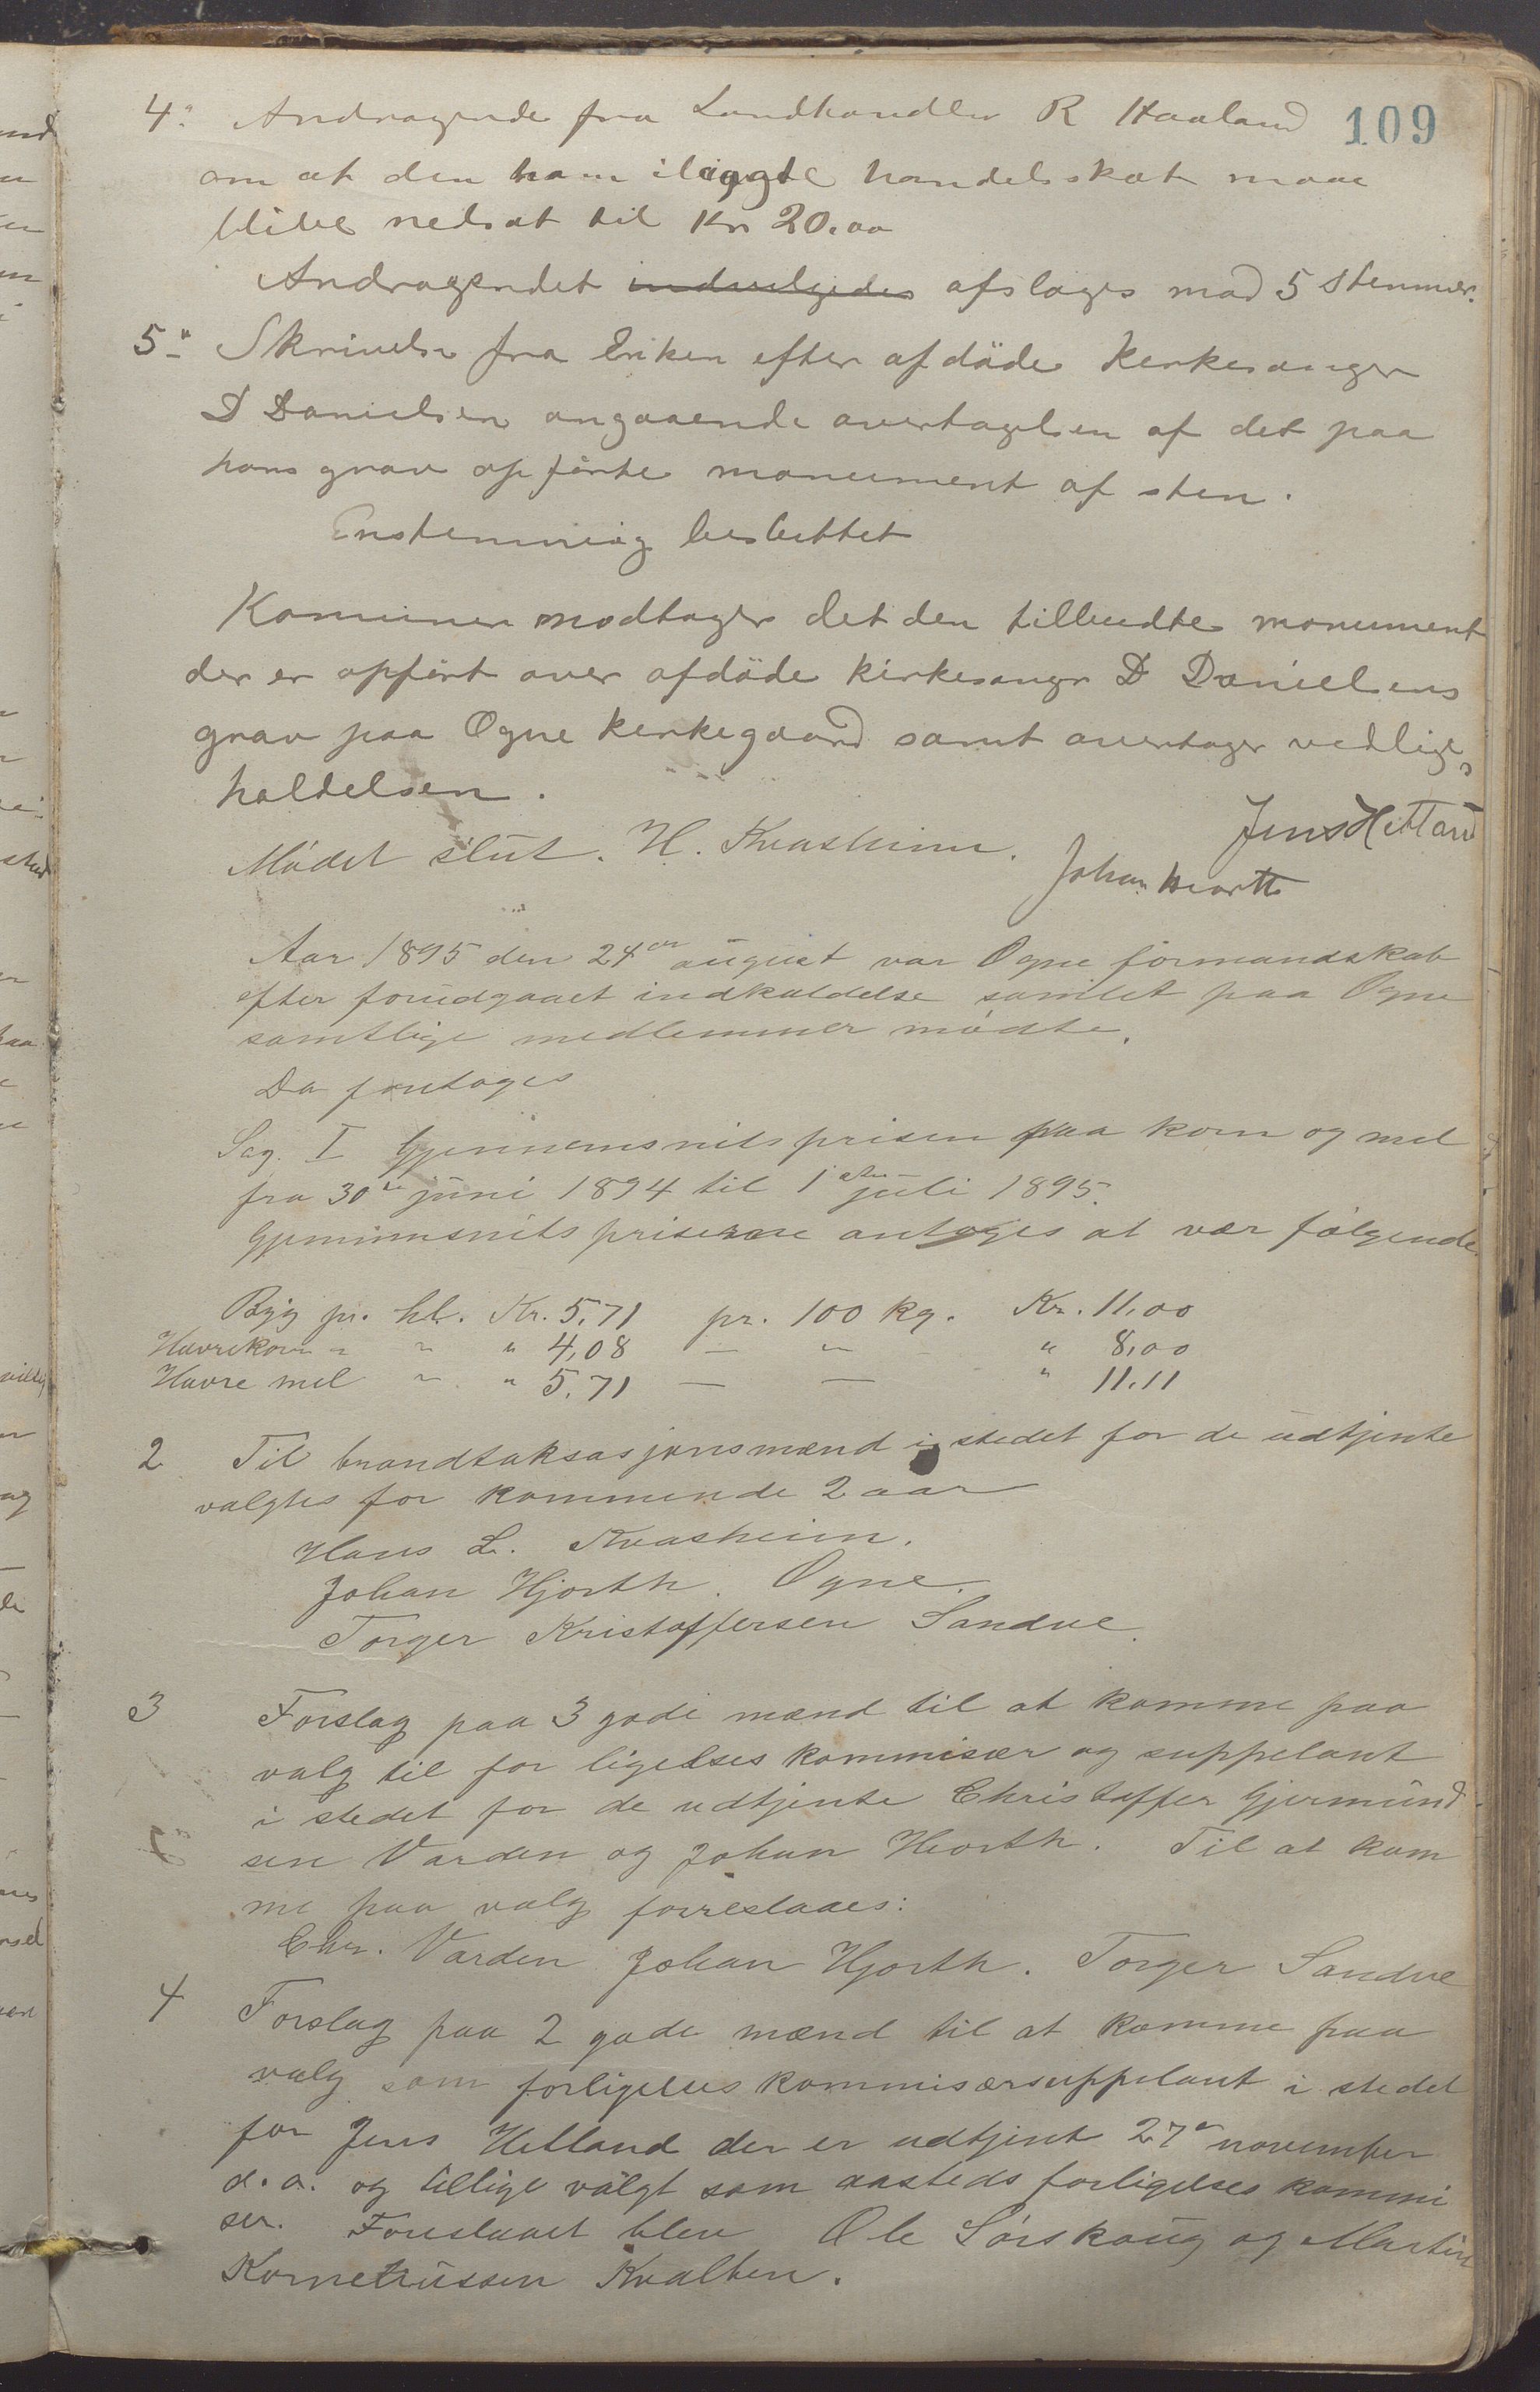 109
4: Andragende fra Landhandler R Haaland
om at den ham ilagte handelsskat maa
blive nedsat til Kr 20.00
Andragendet indvilgedes afslages mod 5 stemmer.
5: Skrivelse fra Enken efter afdöde Kerkesanger
D Danielsen angaaende overtagelsen af det paa
hans grav opförte monument af sten.
Enstemmig besluttet
Komunen modtager det den tilbudte monument
der er opfört over afdöde kirkesanger D Danielsens
grav paa Ogne kerkegaard samt overtager vedlige
holdelsen.
Mödet slut. H. Kvasheim. Jens Hetland
Johan Hiorth
Aar 1895 den 24de august var Ogne formandskab
efter forudgaaet indkaldelse samlet paa Ogne
samtlige medlemmer mødte.
Da foretoges
Sag. I Gjennemsnitsprisen paa korn og mel
fra 30te juni 1894 til 1ste juli 1895.
Gjennimsnitspriserne antoges at vær følgende.
Byg pr. hl. Kr. 5,71 pr. 100 kg. Kr. 11,00
Havrekorn " " " 4,08 — " " 8,00
Havre mel " " 5,71 — — " 11,11
2 Til brandtaksasjonsmænd i stedet for de udtjente
valgtes for kommende 2 aar
Hans L. Kvasheim.
Johan Hjorth. Ogne.
Torger Kristoffersen Sandve.
3 Forslag paa 3 gode mænd til at komme paa
valg til for ligelses kommisær og suppelant
i stedet for de udtjente Christoffer Gjermund
sen Varden og Johan Hiorth. Til at kom
me paa valg forreslaaes:
Chr. Varden Johan Hjorth. Torger Sandve
4 Forslag paa 2 gode mænd til at komme paa
valg som forligelses kommisærsuppelant i stedet
for Jens Hetland der er udtjent 27de november
d.a. og tillige valgt som aasteds forligelses kommi
sær. Foreslaaet blev Ole Sörskoug og Martin
Korneliussen Kvalben.